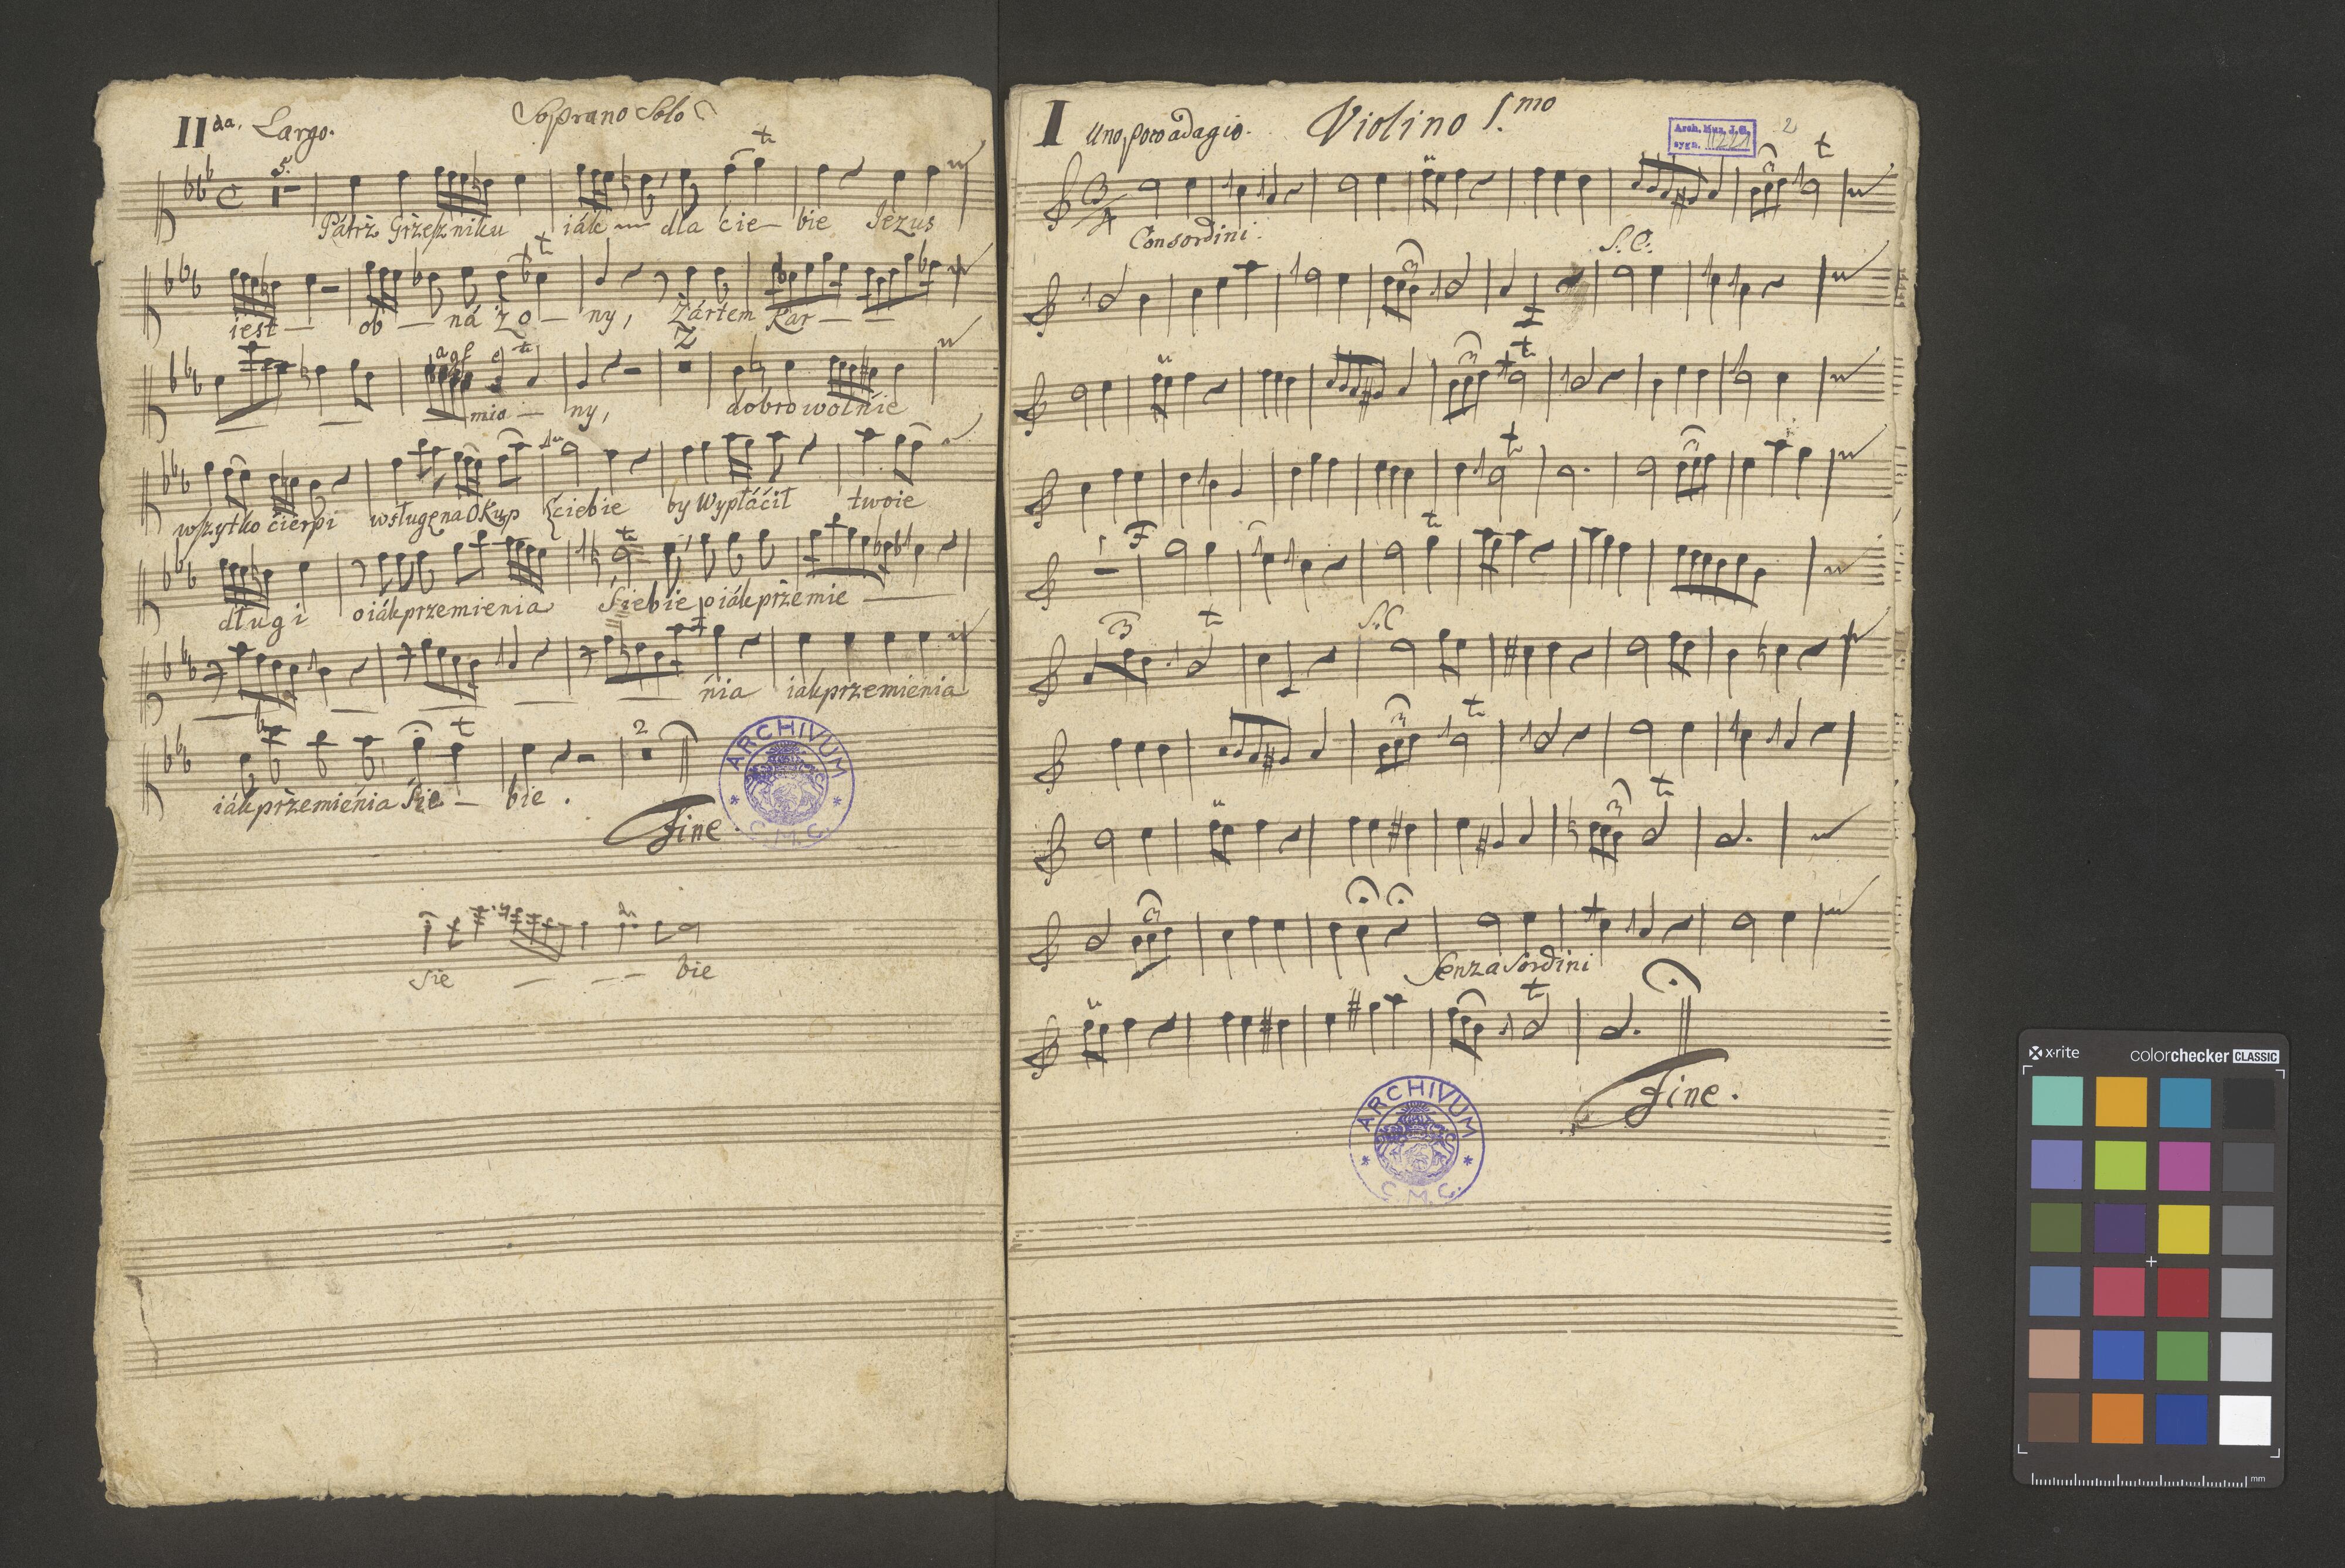 IIda. Largo. Soprano Solo
5.
Pátrż Grżeszniku iák dla ćie - bie Jezus
iest - ob - ná żo - ny, Żártem Kar - -
2
a g f e
mio - ny, dobrowolnie
wszytko ćierpi wsługę na Okup Ciebie by Wypłáćił twoie
długi o iák przemienia Siebie o iák prżemie
nia iak przemienia
2
iák prżemienia Sie - bie.
Fine.
Sie - - - bie
ARCHIVUM
C. M. C.
I Uno poco adagio. Violino 1.mo
Arch. Muz. J.G.
sygn.
2
3
4
Con sordini.
3
S. C.
3
3
3
F
3
S. C
3
3
3
Senza Sordini
Fine.
ARCHIVUM
C. M. C.
x·rite colorchecker CLASSIC
mm